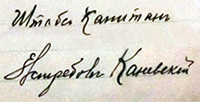 Штабсъ Капитанъ
Ястребовъ Каневскій